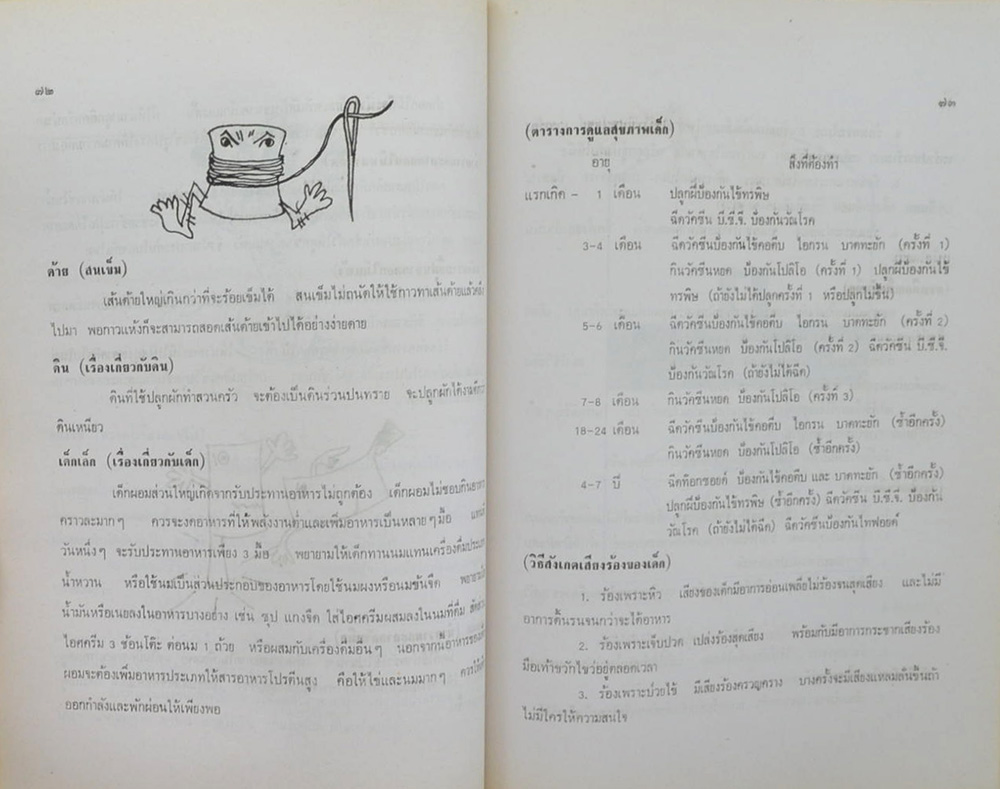 ๗๒
ด้าย (สนเข็ม)
เส้นด้ายใหญ่เกินกว่าที่จะร้อยเข็มได้ สนเข็มไม่ถนัดให้ใช้กาวทาเส้นด้ายแล้ว
ไปมา พอกาวแห้งก็จะสามารถสอดเส้นด้ายเข้าไปได้อย่างง่ายดาย
ดิน (เรื่องเกี่ยวกับดิน)
ดินที่ใช้ปลูกผักทำสวนครัว จะต้องเป็นดินร่วนปนทราย จะปลูกผักได้งาม
ดินเหนียว
เด็กเล็ก (เรื่องเกี่ยวกับเด็ก)
เด็กผอมส่วนใหญ่เกิดจากรับประทานอาหารไม่ถูกต้อง เด็กผอมไม่ชอบกินอาหาร
คราวละมากๆ ควรจะงดอาหารที่ให้พลังงานต่ำและเพิ่มอาหารเป็นหลายๆมื้อ
วันหนึ่งๆ จะรับประทานอาหารเพียง 3 มื้อ พยายามให้เด็กทานนมแทนเครื่องดื่มประเภท
น้ำหวาน หรือใช้นมเป็นส่วนประกอบของอาหารโดยใช้นมผงหรือนมข้นจืด
น้ำมันหรือเนยลงในอาหารบางอย่าง เช่น ซุป แกงจืด ใส่ไอศครีมผสมลงในนมที่ดื่ม
ไอศครีม 3 ช้อนโต๊ะ ต่อนม 1 ถ้วย หรือผสมกับเครื่องดื่มอื่นๆ นอกจากนี้อาหารของ
ผอมจะต้องเพิ่มอาหารประเภทให้สารอาหารโปรตีนสูง คือให้ไข่และนมมากๆ
ออกกำลังและพักผ่อนให้เพียงพอ
๗๓
(ตารางการดูแลสุขภาพเด็ก)
อายุ สิ่งที่ต้องทำ
แรกเกิด - 1 เดือน ปลูกฝีป้องกันไข้ทรพิษ
ฉีดวัคซีน บี.ซี.จี. ป้องกันวัณโรค
3-4 เดือน ฉีดวัคซีนป้องกันไข้คอตีบ ไอกรน บาดทะยัก (ครั้งที่ 1)
กินวัคซีนหยด ป้องกันโปลิโอ (ครั้งที่ 1) ปลูกฝีป้องกันไข้
ทรพิษ (ถ้ายังไม่ได้ปลูกครั้งที่ 1 หรือปลูกไม่ขึ้น)
5-6 เดือน ฉีดวัคซีนป้องกันไข้คอตีบ ไอกรน บาดทะยัก (ครั้งที่ 2)
กินวัคซีนหยด ป้องกันโปลิโอ (ครั้งที่ 2) ฉีดวัคซีน บี.ซี.จี.
ป้องกันวัณโรค (ถ้ายังไม่ได้ฉีด)
7-8 เดือน กินวัคซีนหยด ป้องกันโปลิโอ (ครั้งที่ 3)
18-24 เดือน ฉีดวัคซีนป้องกันไข้คอตีบ ไอกรน บาดทะยัก (ซ้ำอีกครั้ง)
กินวัคซีนหยด ป้องกันโปลิโอ (ซ้ำอีกครั้ง)
4-7 ปี ฉีดท๊อกซอยด์ ป้องกันไข้คอตีบ และ บาดทะยัก (ซ้ำอีกครั้ง)
ปลูกฝีป้องกันไข้ทรพิษ (ซ้ำอีกครั้ง) ฉีดวัคซีน บี.ซี.จี. ป้องกัน
วัณโรค (ถ้ายังไม่ได้ฉีด) ฉีดวัคซีนป้องกันไทฟอยด์
(วิธีสังเกตเสียงร้องของเด็ก)
1. ร้องเพราะหิว เสียงของเด็กมีอาการอ่อนเพลียไม่ร้องจนสุดเสียง และไม่มี
อาการดิ้นรนจนกว่าจะได้อาหาร
2. ร้องเพราะเจ็บปวด เปล่งร้องสุดเสียง พร้อมกับมีอาการกระชากเสียงร้อง
มือเท้าขวักไขว่อยู่ตลอดเวลา
3. ร้องเพราะป่วยไข้ มีเสียงร้องครวญคราง บางครั้งจะมีเสียงแหลมลั่นขึ้นถ้า
ไม่มีใครให้ความสนใจ